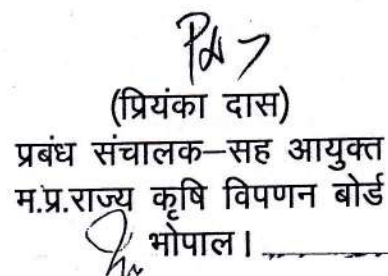 (प्रियंका दास)
प्रबंध संचालक–सह आयुक्त
म.प्र.राज्य कृषि विपणन बोर्ड
भोपाल।